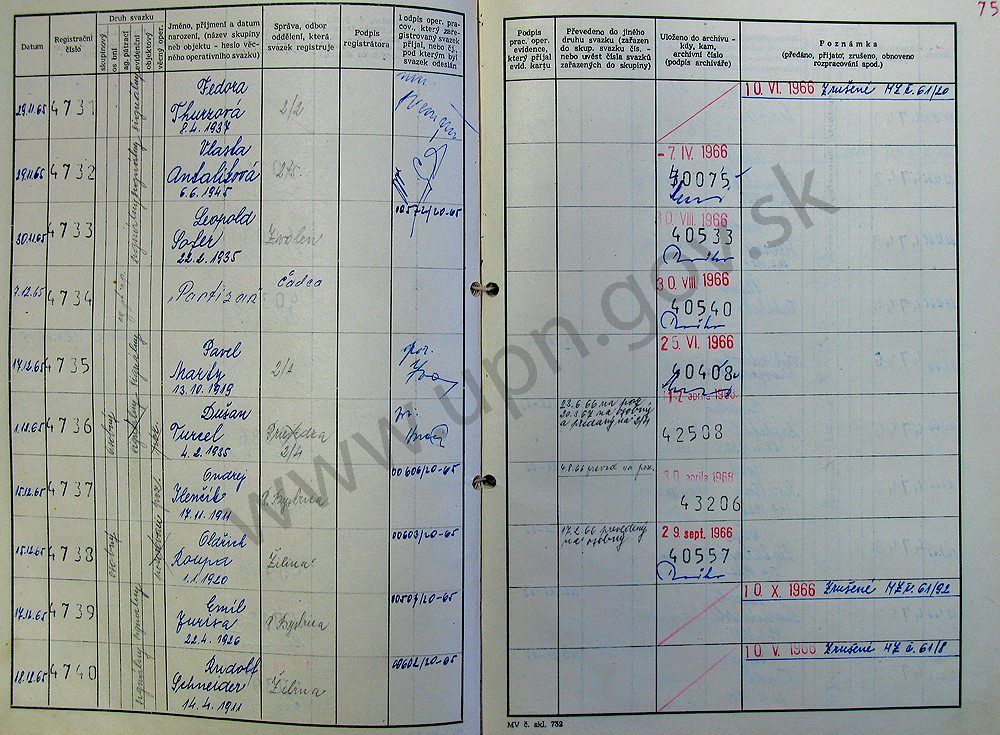 75
Datum
Registrační číslo
Druh svazku
skupinový
osobní
ag. pátrací
signální
evidenční
objektový
věcný oper.
Jméno, příjmení a datum
narození, (název skupiny
neb objektu - heslo věc-
ného operativního svazku)
Správa, odbor
oddělení, která
svazek registruje
Podpis
registrátora
Podpis oper. pra-
cov., který zare-
gistrovaný svazek
přijal, nebo čj.
pod kterým byl
svazek odeslán
Podpis
prac. oper.
evidence,
který přijal
evid. kartu
Převedeno do jiného
druhu svazku (zařazen
do skup. svazku čís. -
nebo uvést čísla svazků
zařazených do skupiny)
Uloženo do archivu -
kdy, kam,
archivní číslo
(podpis archiváře)
Poznámka
(předáno, přijato, zrušeno, obnoveno
rozpracování spod.)
29.11.65 4731 Fedora
Thurzová
8.4.1937
2/2
10. VI. 1966 Zrušené MZ č. 61/20
29.11.65 4732 Vlasta
Antalitzová
6.6.1945
-7. IV. 1966
40075
30.11.65 4733 Leopold
Sofer
22.2.1935
Zvolen
00572/20-65
30. VIII. 1966
40533
7.12.65 4734 „Partizan"
Čadca
30. VIII. 1966
40540
14.12.65 4735 Pavel
Marty
13.10.1919
2/1
25. VI. 1966
40408
1.12.65 4736 Dušan
Turcel
4.2.1935
2/4
23.6.66 na poz.
20.3.67 na osobný
a predaný na 2/4
17. apríla 1968
42508
15.12.65 4737 Ondrej
Klenčík
17.11.1911
P. Bystrica
00606/20-65
4.8.66 prevod na poz.
30. apríla 1968
43206
15.12.65 4738 osobný Oldřich
Koupa
1.1.1920
Žilina
00603/20-65
17.2.66 prevedený
na osobný
29. sept. 1966
40557
17.12.65 4739 signálny Emil
Jurisa
22.4.1926
P. Bystrica
00507/20-65
10. X. 1966 Zrušené MZ č. 61/92
18.12.65 4740 signálny Rudolf
Schneider
14.4.1911
Žilina
00602/20-65
10. V. 1966 Zrušené MZ č. 61/8
MV č. skl. 752
www.upn.gov.sk